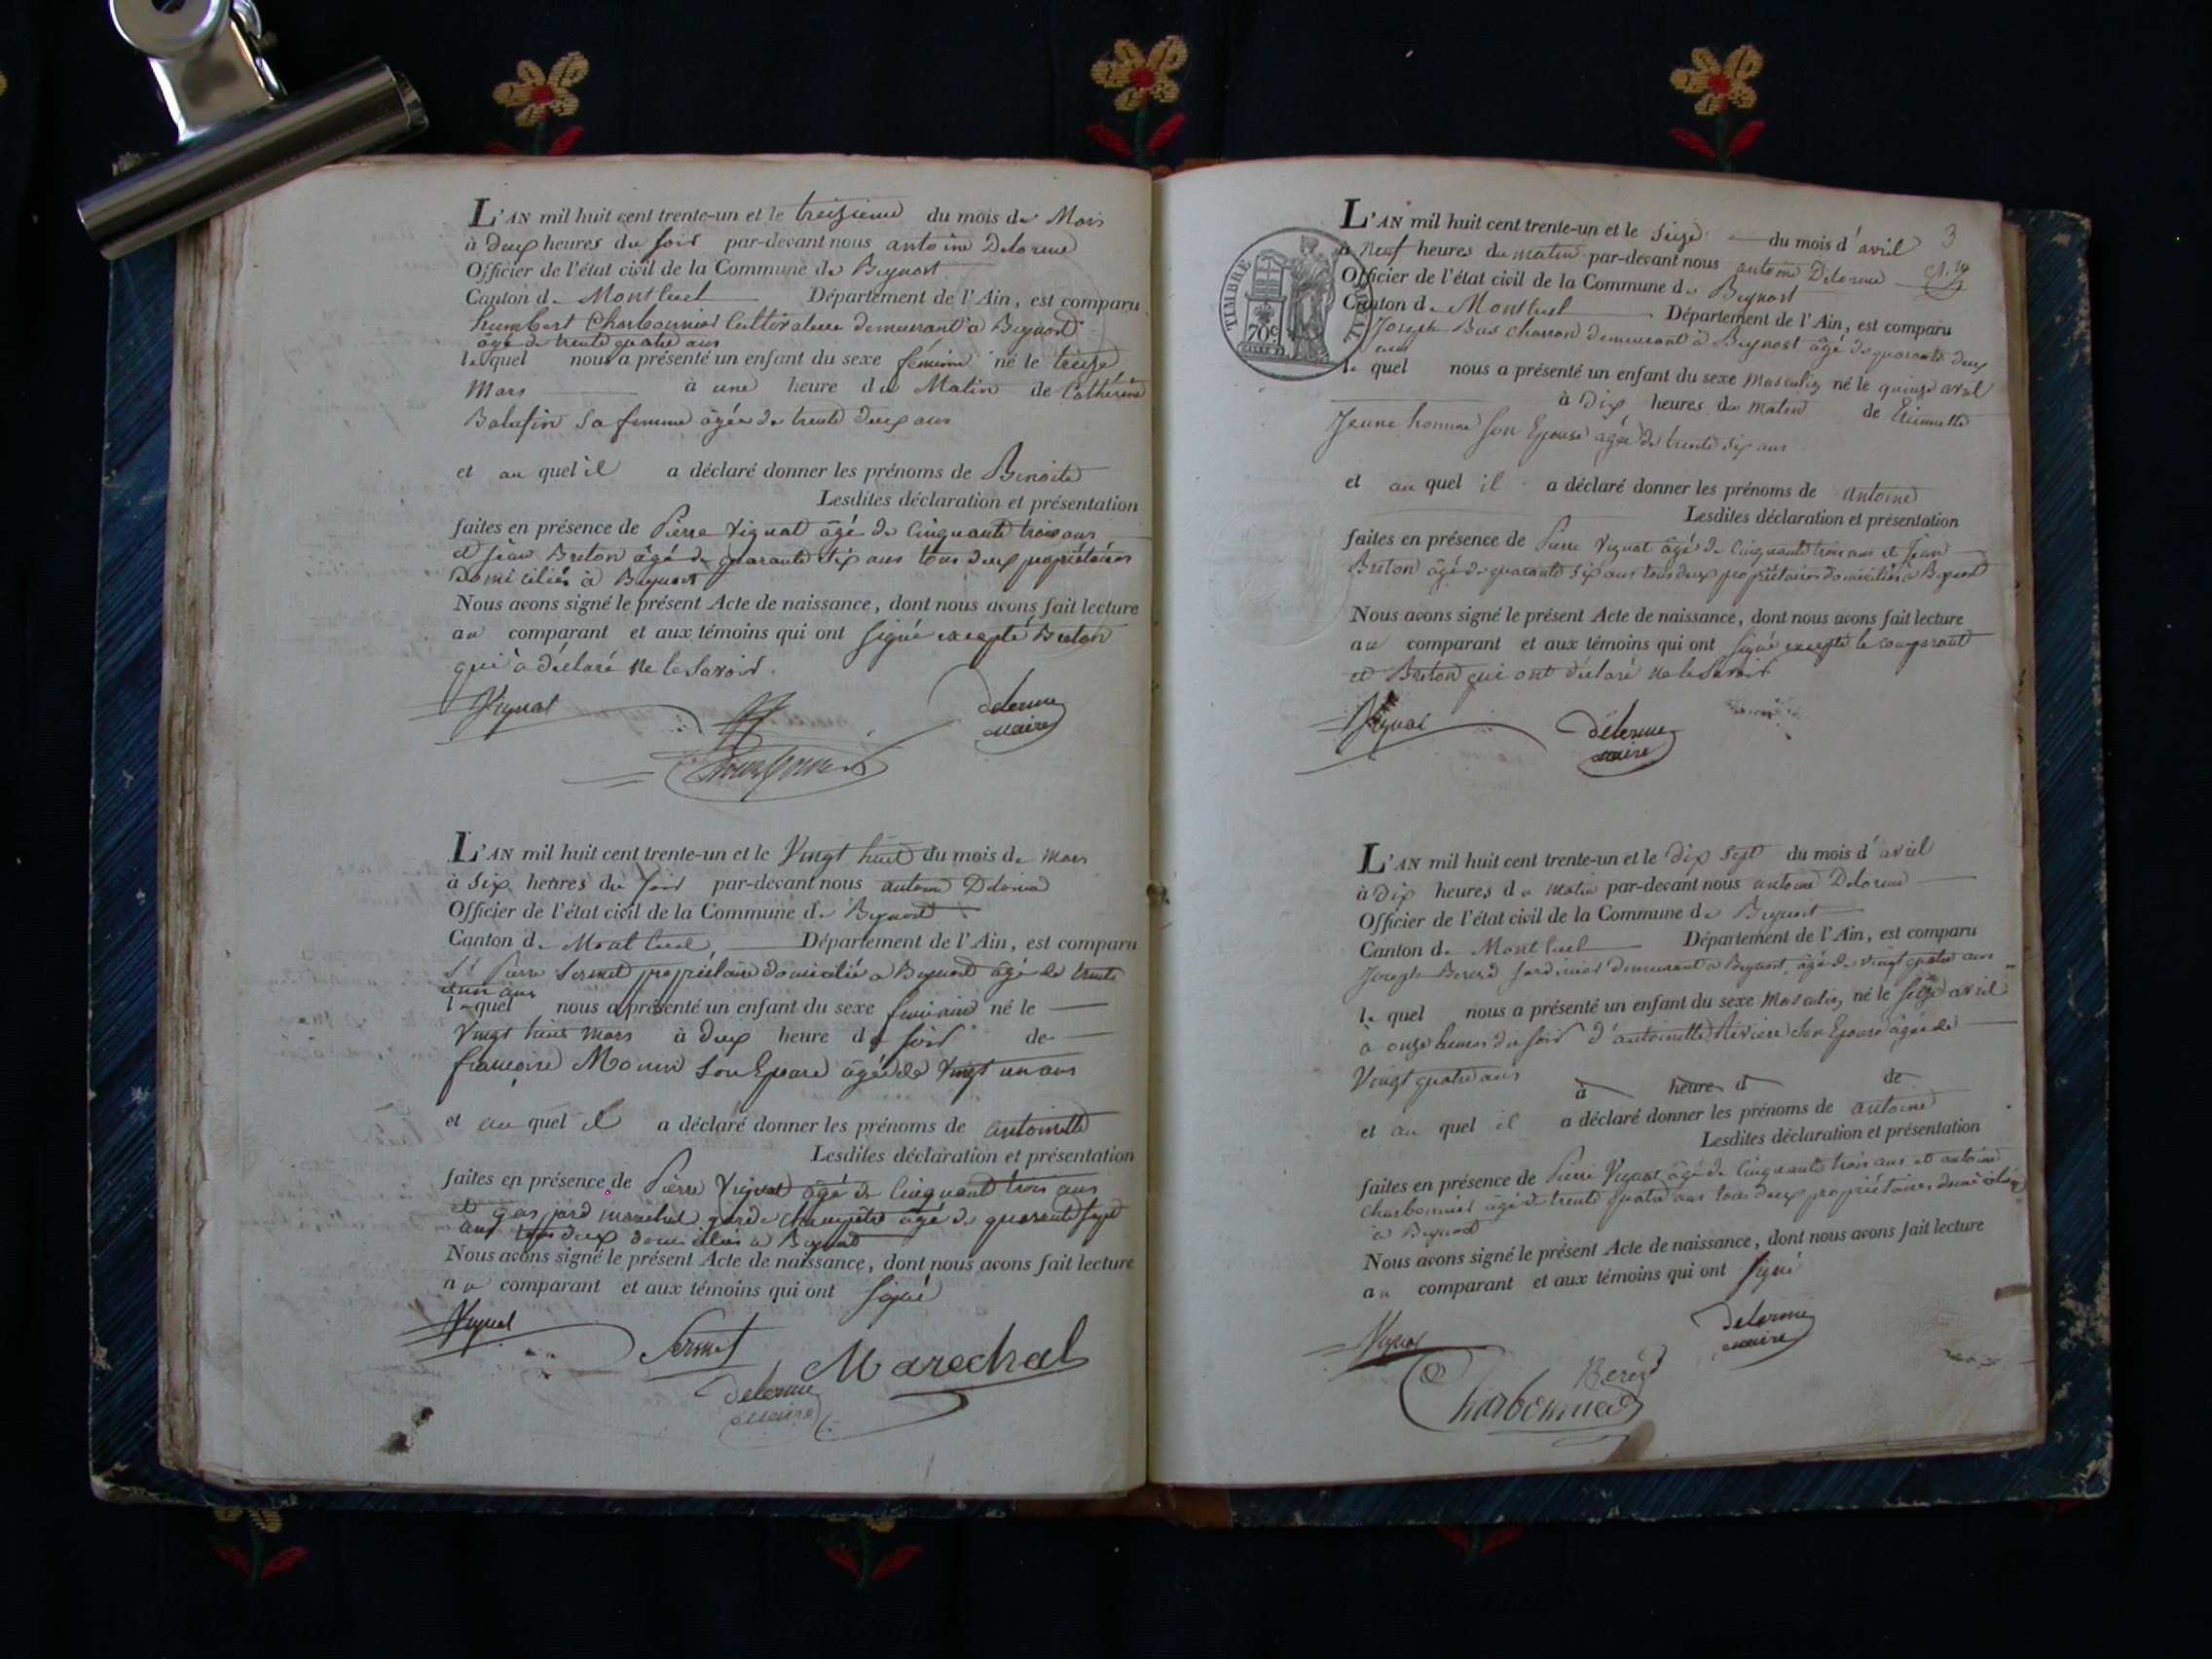 L'AN mil huit cent trente-un et le treizieme du mois de Mars
à deux heures du soir par-devant nous antoine Delorme
Officier de l'état civil de la Commune de Beynost
Canton de Montluel Département de l'Ain, est comparu
humbert Charbonnier Cultivateur demeurant à Beynost
âgé de trente quatre ans
lequel nous a présenté un enfant du sexe féminin né le treize
Mars à une heure du Matin de Catherine
sa femme âgée de trente deux ans
et au quel il a déclaré donner les prénoms de Benoite
Lesdites déclaration et présentation
faites en présence de Pierre Vignat âgé de Cinquante trois ans
et Jean Breton âgé de quarante six ans tous deux propriétaires
domiciliés à Beynost
Nous avons signé le présent Acte de naissance, dont nous avons fait lecture
au comparant et aux témoins qui ont signé excepté Breton
qui a déclaré ne le savoir.
Vignat
delorme
maire
Charbonnier
L'AN mil huit cent trente-un et le Vingt huit du mois de mars
à six heures du soir par-devant nous antoine Delorme
Officier de l'état civil de la Commune de Beynost
Canton de Montluel Département de l'Ain, est comparu
Sr Pierre Sermet propriétaire domicilié à Beynost âgé de trente
et un ans
lequel nous a présenté un enfant du sexe féminin né le
Vingt huit mars à deux heure du soir de
françoise Monin son Epouse âgée de vingt un ans
et au quel il a déclaré donner les prénoms de antoinette
Lesdites déclaration et présentation
faites en présence de Pierre Vignat âgé de Cinquante trois ans
et gaspard marechal garde champêtre âgé de quarante sept
ans tous deux domiciliés à Beynost
Nous avons signé le présent Acte de naissance, dont nous avons fait lecture
au comparant et aux témoins qui ont signé
Vignat
Sermet
Marechal
delorme
maire
3
TIMBRE ROYAL
70c
L'AN mil huit cent trente-un et le seize du mois d'avril
à neuf heures du matin par-devant nous antoine Delorme
Officier de l'état civil de la Commune de Beynost
Canton de Montluel Département de l'Ain, est comparu
Joseph Bas charron demeurant à Beynost âgé de quarante deux
ans
le quel nous a présenté un enfant du sexe masculin né le quinze avril
à dix heures du matin de Etiennette
Jeune homme son Epouse âgée de trente six ans
et au quel il a déclaré donner les prénoms de antoine
Lesdites déclaration et présentation
faites en présence de Pierre Vignat âgé de Cinquante trois ans et Jean
Breton âgé de quarante six ans tous deux propriétaires domiciliés à Beynost
Nous avons signé le présent Acte de naissance, dont nous avons fait lecture
au comparant et aux témoins qui ont signé excepté le comparant
et Breton qui ont déclaré ne le savoir
Vignat
delorme
maire
L'AN mil huit cent trente-un et le dix sept du mois d'avril
à Dix heures du matin par-devant nous antoine Delorme
Officier de l'état civil de la Commune de Beynost
Canton de Montluel Département de l'Ain, est comparu
Joseph Bererd Jardinier demeurant à Beynost, âgé de vingt quatre ans
le quel nous a présenté un enfant du sexe masculin né le seize avril
à onze heures du soir d'antoinette Riviere son Epouse âgée de
Vingt quatre ans
à heure d de
et au quel il a déclaré donner les prénoms de antoine
Lesdites déclaration et présentation
faites en présence de Pierre Vignat âgé de Cinquante trois ans et antoine
Charbonnier âgé de trente quatre ans tous deux propriétaires domiciliés
à Beynost
Nous avons signé le présent Acte de naissance, dont nous avons fait lecture
au comparant et aux témoins qui ont signé
Vignat
delorme
maire
Bererd
Charbonnier